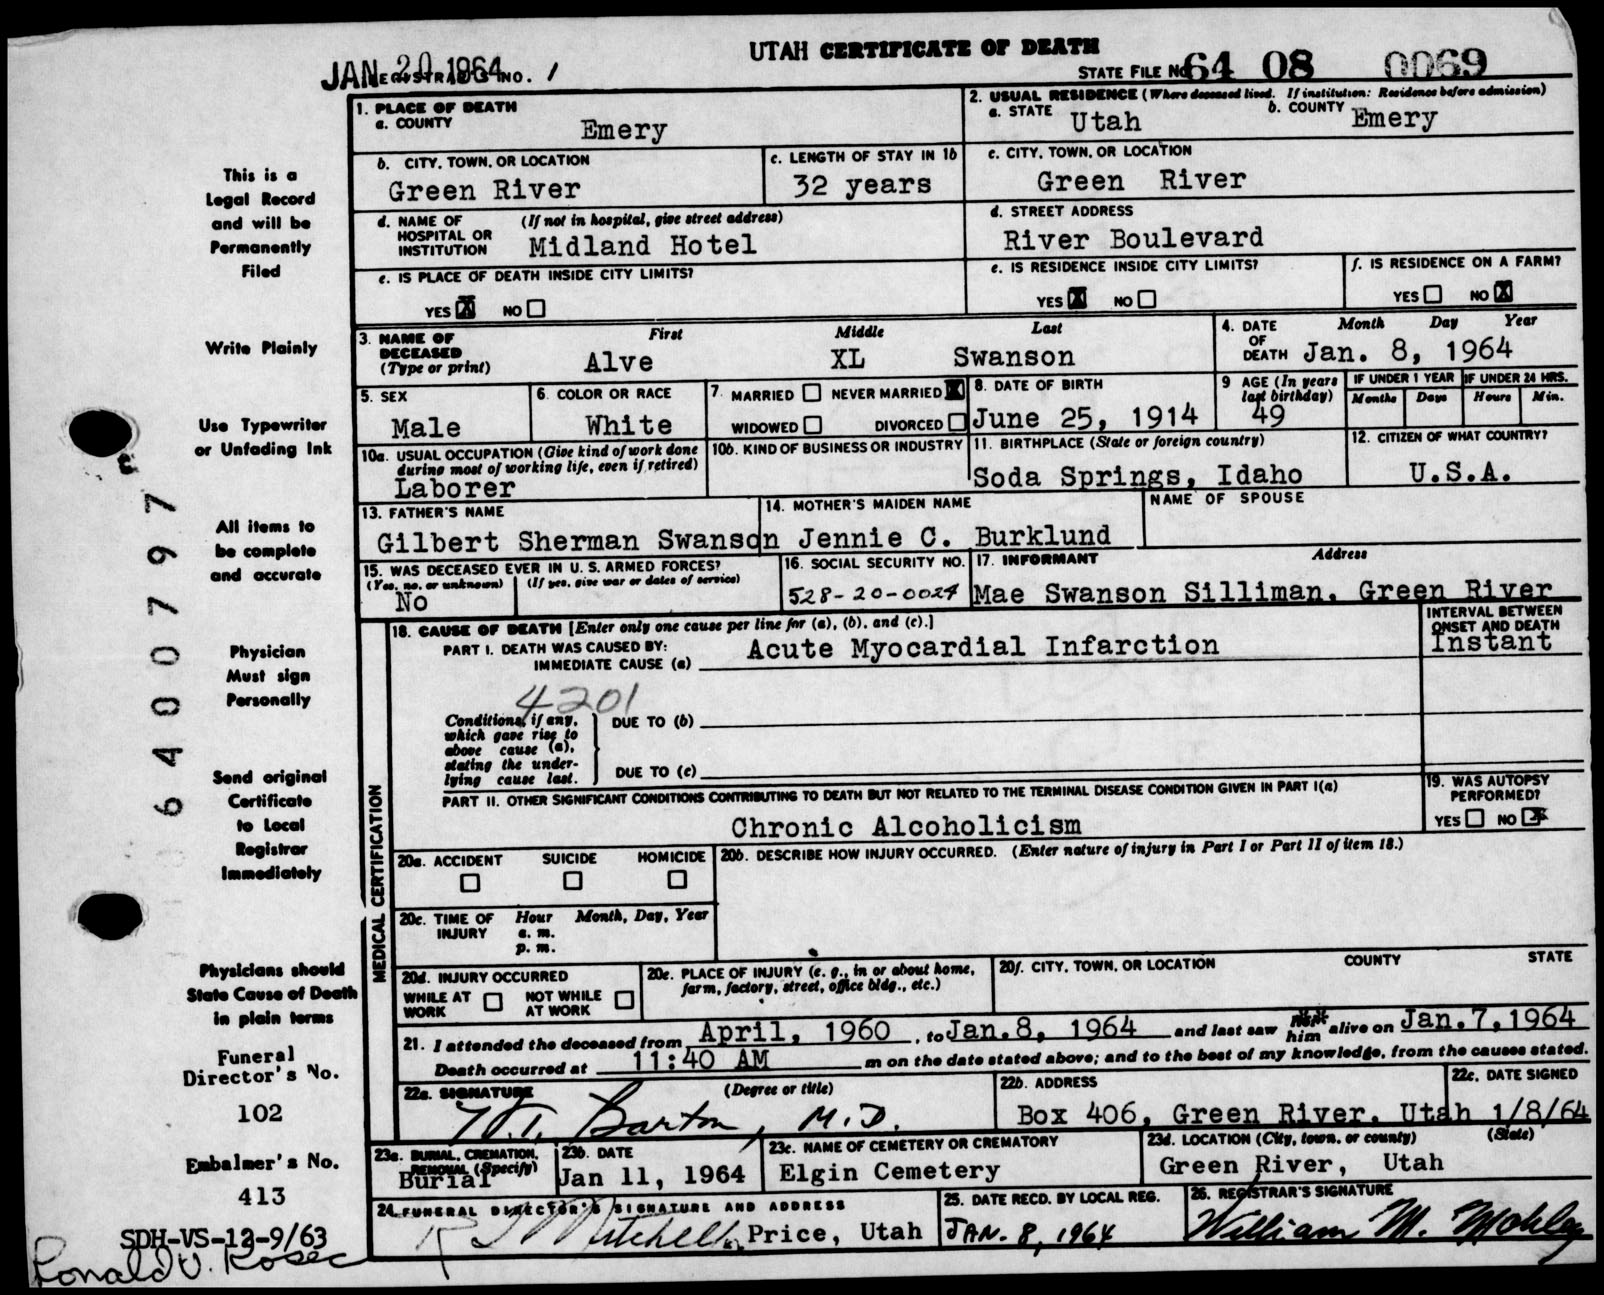 UTAH CERTIFICATE OF DEATH
JAN 20 1964
REGISTRAR'S NO. 1
STATE FILE NO. 64 08 0069
1. PLACE OF DEATH
a. COUNTY Emery
2. USUAL RESIDENCE (Where deceased lived. If institution: Residence before admission)
a. STATE Utah b. COUNTY Emery
b. CITY, TOWN, OR LOCATION
Green River
c. LENGTH OF STAY IN 1b
32 years
c. CITY, TOWN, OR LOCATION
Green River
d. NAME OF HOSPITAL OR INSTITUTION (If not in hospital, give street address)
Midland Hotel
d. STREET ADDRESS
River Boulevard
e. IS PLACE OF DEATH INSIDE CITY LIMITS?
YES X NO
e. IS RESIDENCE INSIDE CITY LIMITS?
YES X NO
f. IS RESIDENCE ON A FARM?
YES NO X
3. NAME OF DECEASED (Type or print)
First Middle Last
Alve XL Swanson
4. DATE OF DEATH Month Day Year
Jan. 8, 1964
5. SEX
Male
6. COLOR OR RACE
White
7. MARRIED NEVER MARRIED X
WIDOWED DIVORCED
8. DATE OF BIRTH
June 25, 1914
9 AGE (In years last birthday)
49
IF UNDER 1 YEAR IF UNDER 24 HRS.
Months Days Hours Min.
10a. USUAL OCCUPATION (Give kind of work done during most of working life, even if retired)
Laborer
10b. KIND OF BUSINESS OR INDUSTRY
11. BIRTHPLACE (State or foreign country)
Soda Springs, Idaho
12. CITIZEN OF WHAT COUNTRY?
U.S.A.
13. FATHER'S NAME
Gilbert Sherman Swanson
14. MOTHER'S MAIDEN NAME
Jennie C. Burklund
NAME OF SPOUSE
15. WAS DECEASED EVER IN U. S. ARMED FORCES?
(Yes, no, or unknown) (If yes, give war or dates of service)
No
16. SOCIAL SECURITY NO.
528-20-0024
17. INFORMANT Address
Mae Swanson Silliman, Green River
MEDICAL CERTIFICATION
18. CAUSE OF DEATH [Enter only one cause per line for (a), (b), and (c).]
PART I. DEATH WAS CAUSED BY:
IMMEDIATE CAUSE (a) Acute Myocardial Infarction
INTERVAL BETWEEN ONSET AND DEATH
Instant
4201
Conditions, if any, which gave rise to above cause (a), stating the underlying cause last.
DUE TO (b)
DUE TO (c)
PART II. OTHER SIGNIFICANT CONDITIONS CONTRIBUTING TO DEATH BUT NOT RELATED TO THE TERMINAL DISEASE CONDITION GIVEN IN PART I(a)
Chronic Alcoholicism
19. WAS AUTOPSY PERFORMED?
YES NO X
20a. ACCIDENT SUICIDE HOMICIDE
20b. DESCRIBE HOW INJURY OCCURRED. (Enter nature of injury in Part I or Part II of item 18.)
20c. TIME OF INJURY Hour Month, Day, Year
a. m.
p. m.
20d. INJURY OCCURRED
WHILE AT WORK NOT WHILE AT WORK
20e. PLACE OF INJURY (e. g., in or about home, farm, factory, street, office bldg., etc.)
20f. CITY, TOWN, OR LOCATION COUNTY STATE
21. I attended the deceased from April, 1960, to Jan.8, 1964 and last saw him alive on Jan.7,1964
Death occurred at 11:40 AM m on the date stated above; and to the best of my knowledge, from the causes stated.
22a. SIGNATURE (Degree or title)
Barton, M.D.
22b. ADDRESS
Box 406, Green River, Utah
22c. DATE SIGNED
1/8/64
23a. BURIAL, CREMATION, REMOVAL (Specify)
Burial
23b. DATE
Jan 11, 1964
23c. NAME OF CEMETERY OR CREMATORY
Elgin Cemetery
23d. LOCATION (City, town, or county) (State)
Green River, Utah
24. FUNERAL DIRECTOR'S SIGNATURE AND ADDRESS
Mitchell Price, Utah
25. DATE RECD. BY LOCAL REG.
JAN. 8, 1964
26. REGISTRAR'S SIGNATURE
William M. Mohley
This is a
Legal Record
and will be
Permanently
Filed
Write Plainly
Use Typewriter
or Unfading Ink
All items to
be complete
and accurate
Physician
Must sign
Personally
Send original
Certificate
to Local
Registrar
Immediately
Physicians should
State Cause of Death
in plain terms
Funeral
Director's No.
102
Embalmer's No.
413
SDH-VS-12-9/63
Ronald V. Kosec
6400797